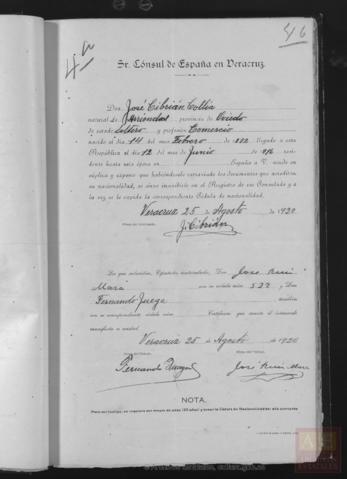 4a
46
Sr. Cónsul de España en Veracruz.
Don José Cibrián Collía
natural de Arriondas provincia de Oviedo
de estado soltero y profesión Comercio
nacido el día 14 del mes Febrero de 892 llegado a esta
República el día 12 del mes de Junio de 916 resi-
dente hasta esta época en España a V. acude en
súplica y expone que habiéndosele extraviado los documentos que acreditan
su nacionalidad, se sirva inscribirlo en el Registro de ese Consulado y a
la vez se le expida la correspondiente Cédula de nacionalidad.
Veracruz 25 de Agosto de 1920
J. Cibrián
Los que subscriben, Españoles matriculados, Don José Ruiz
Mara con su cédula núm. 532 y Don
Fernando Juega
con su correspondiente cédula núm. Certifican que cuanto el interesado
manifiesta es verdad.
Veracruz 25 de Agosto de 1920
Fernando Juega
José Ruiz
NOTA.